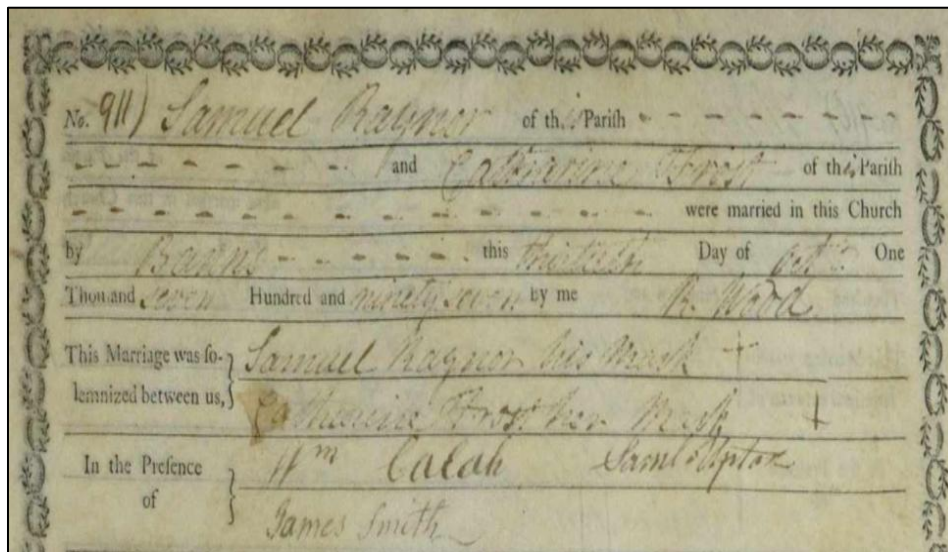 No. 911) Samuel Raynor of this Parish
and Catharine Frost of this Parish
were married in this Church
by Banns this thirteen Day of Octr. One
Thousand seven Hundred and ninety seven by me R. Wood
This Marriage was so- Samuel Raynor his Mark +
lemnized between us, Catharine Frost her Mark +
In the Presence Wm Saml Upton
of James Smith